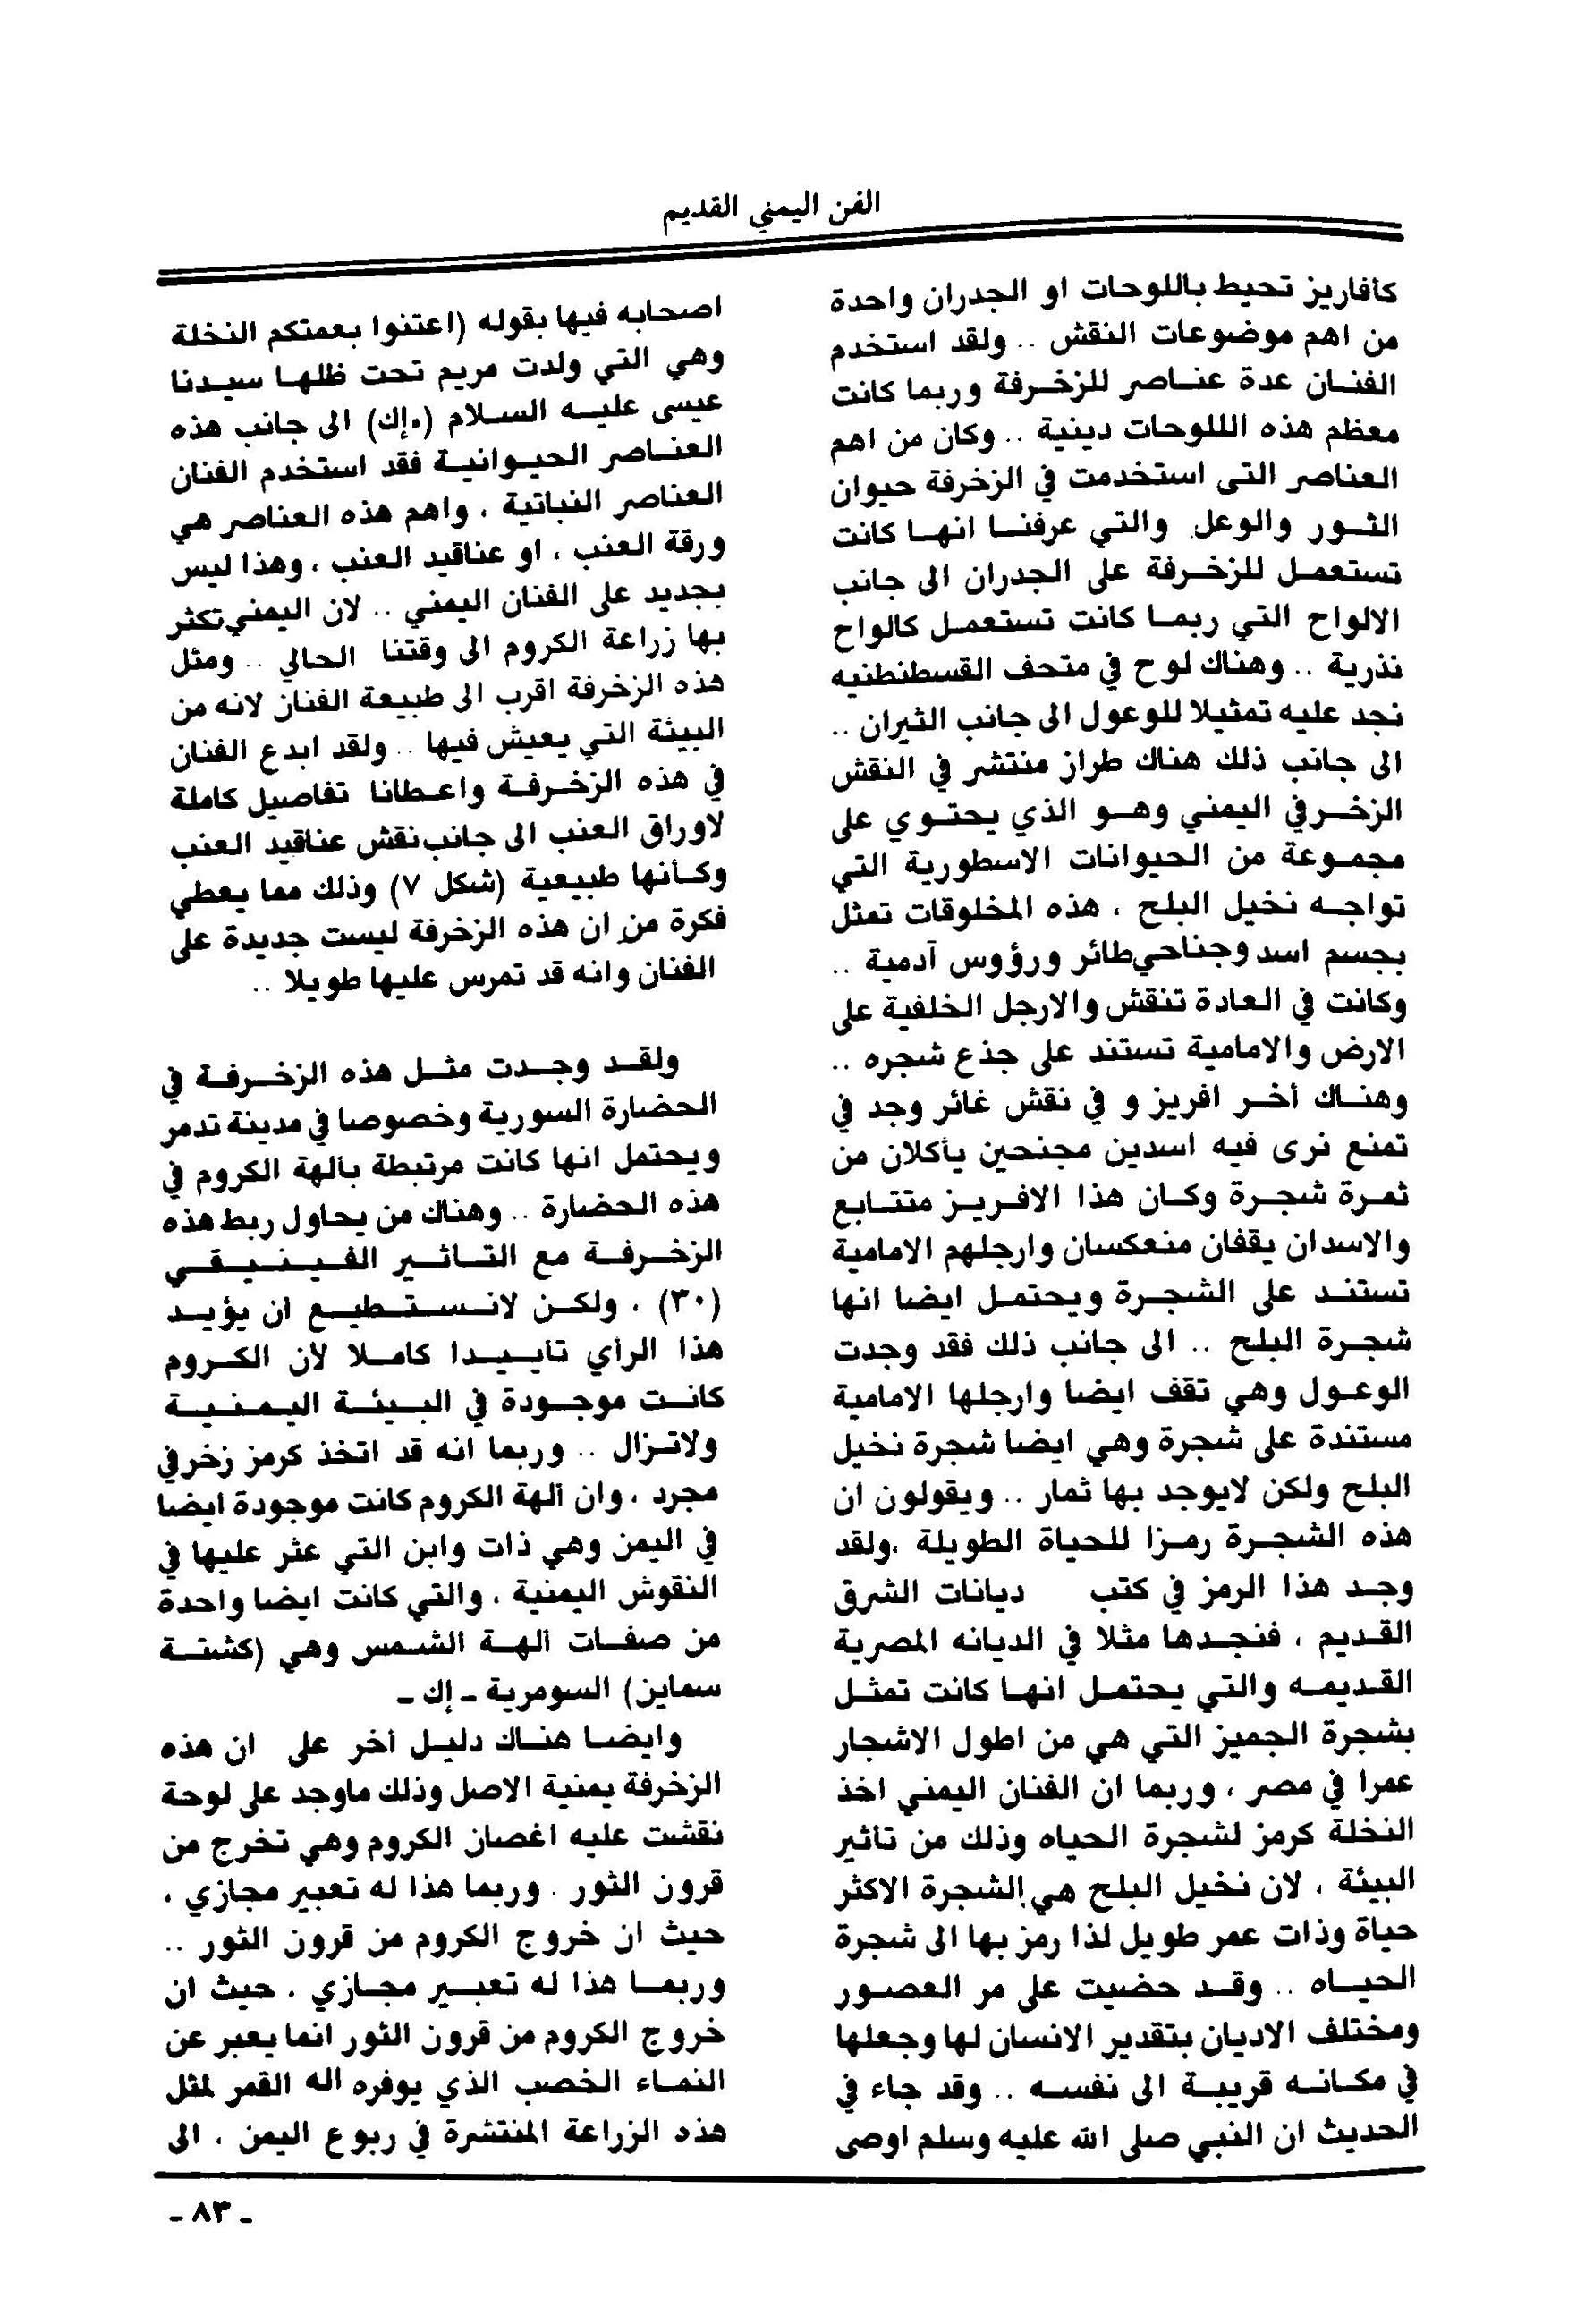 الفن اليمني القديم
كأفاريز تحيط باللوحات او الجدران واحدة
من اهم موضوعات النقش .. ولقد استخدم
الفنان عدة عناصر للزخرفة وربما كانت
معظم هذه الللوحات دينية .. وكان من اهم
العناصر التى استخدمت في الزخرفة حيوان
الثور والوعل والتي عرفنا انها كانت
تستعمل للزخرفة على الجدران الى جانب
الالواح التي ربما كانت تستعمل كالواح
نذرية .. وهناك لوح في متحف القسطنطنيه
نجد عليه تمثيلا للوعول الى جانب الثيران ..
الى جانب ذلك هناك طراز منتشر في النقش
الزخرفي اليمني وهو الذي يحتوي على
مجموعة من الحيوانات الاسطورية التي
تواجه نخيل البلح ، هذه المخلوقات تمثل
بجسم اسد وجناحي طائر ورؤوس آدمية ..
وكانت في العادة تنقش والارجل الخلفية على
الارض والامامية تستند على جذع شجره ..
وهناك أخر افريز و في نقش غائر وجد في
تمنع نرى فيه اسدين مجنحين يأكلان من
ثمرة شجرة وكان هذا الافريز متتابع
والاسدان يقفان منعكسان وارجلهم الامامية
تستند على الشجرة ويحتمل ايضا انها
شجرة البلح .. الى جانب ذلك فقد وجدت
الوعول وهي تقف ايضا وارجلها الامامية
مستندة على شجرة وهي ايضا شجرة نخيل
البلح ولكن لايوجد بها ثمار .. ويقولون ان
هذه الشجرة رمزا للحياة الطويلة ،ولقد
وجد هذا الرمز في كتب ديانات الشرق
القديم ، فنجدها مثلا في الديانه المصرية
القديمه والتي يحتمل انها كانت تمثل
بشجرة الجميز التي هي من اطول الاشجار
عمرا في مصر ، وربما ان الفنان اليمني اخذ
النخلة كرمز لشجرة الحياه وذلك من تأثير
البيئة ، لان نخيل البلح هي الشجرة الاكثر
حياة وذات عمر طويل لذا رمز بها الى شجرة
الحياه .. وقد حضيت على مر العصور
ومختلف الاديان بتقدير الانسان لها وجعلها
في مكانه قريبة الى نفسه .. وقد جاء في
الحديث ان النبي صلى الله عليه وسلم اوصى
اصحابه فيها بقوله (اعتنوا بعمتكم النخلة
وهي التي ولدت مريم تحت ظلها سيدنا
عيسى عليه السلام (،إك) الى جانب هذه
العناصر الحيوانية فقد استخدم الفنان
العناصر النباتية ، واهم هذه العناصر هي
ورقة العنب ، او عناقيد العنب ، وهذا ليس
بجديد على الفنان اليمني .. لان اليمني تكثر
بها زراعة الكروم الى وقتنا الحالي .. ومثل
هذه الزخرفة اقرب الى طبيعة الفنان لانه من
البيئة التي يعيش فيها .. ولقد ابدع الفنان
في هذه الزخرفة واعطانا تفاصيل كاملة
لاوراق العنب الى جانب نقش عناقيد العنب
وكأنها طبيعية (شكل ٧) وذلك مما يعطي
فكرة من ان هذه الزخرفة ليست جديدة على
الفنان وانه قد تمرس عليها طويلا ..
ولقد وجدت مثل هذه الزخرفة في
الحضارة السورية وخصوصا في مدينة تدمر
ويحتمل انها كانت مرتبطة بألهة الكروم في
هذه الحضارة .. وهناك من يحاول ربط هذه
الزخرفة مع التاثير الفينيقي
(٣٠) ، ولكن لانستطيع ان يؤيد
هذا الرأي تأييدا كاملا لأن الكروم
كانت موجودة في البيئة اليمنية
ولاتزال .. وربما انه قد اتخذ كرمز زخرفي
مجرد ، وان ألهة الكروم كانت موجودة ايضا
في اليمن وهي ذات وابن التي عثر عليها في
النقوش اليمنية ، والتي كانت ايضا واحدة
من صفات ألهة الشمس وهي (كشتة
سماين) السومرية - إك -
وايضا هناك دليل أخر على ان هذه
الزخرفة يمنية الاصل وذلك ماوجد على لوحة
نقشت عليه اغصان الكروم وهي تخرج من
قرون الثور . وربما هذا له تعبير مجازي ،
حيث ان خروج الكروم من قرون الثور ..
وربما هذا له تعبير مجازي ، حيث ان
خروج الكروم من قرون الثور انما يعبر عن
النماء الخصب الذي يوفره اله القمر لمثل
هذه الزراعة المنتشرة في ربوع اليمن ، الى
- ٨٣ -